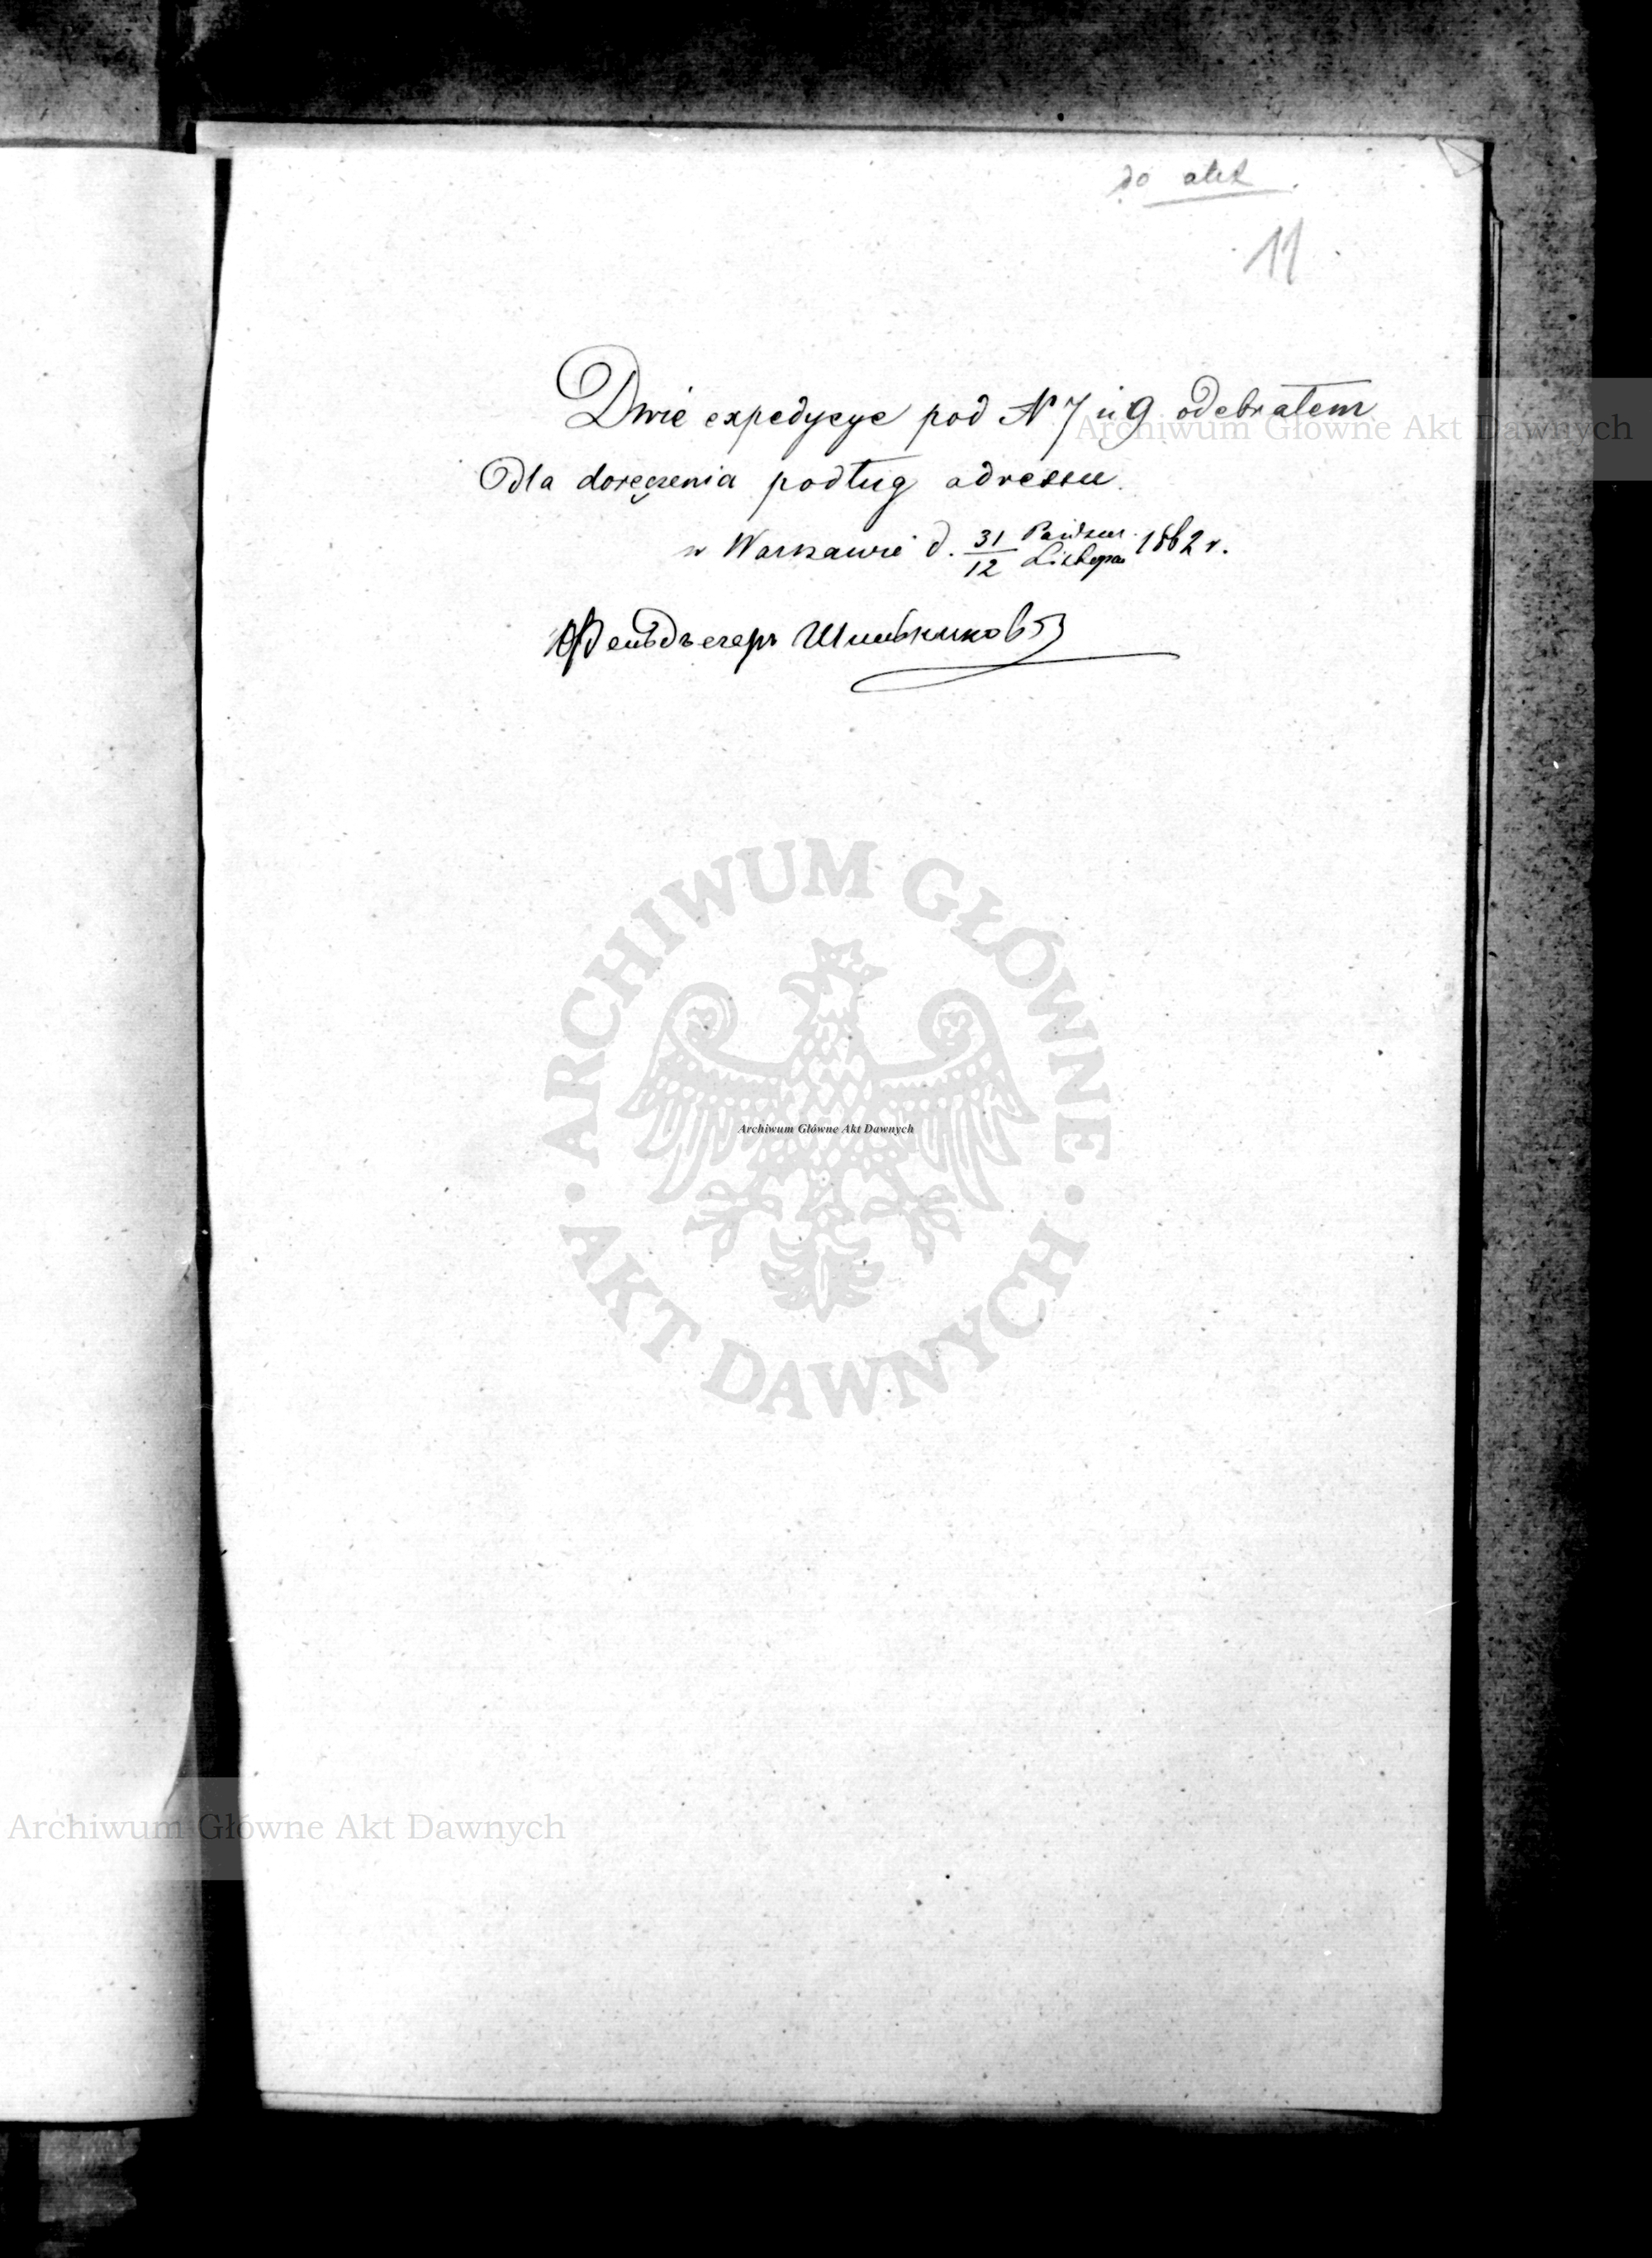 do akt
11
Dwie expedycye pod N 7 i 9 odebrałem
dla doręczenia podług adressu.
w Warszawie d. 31/12 Paździer. / Listopa 1862 r.
Фельдъегерь
Archiwum Główne Akt Dawnych
ARCHIWUM GŁÓWNE
Archiwum Główne Akt Dawnych
AKT DAWNYCH
Archiwum Główne Akt Dawnych